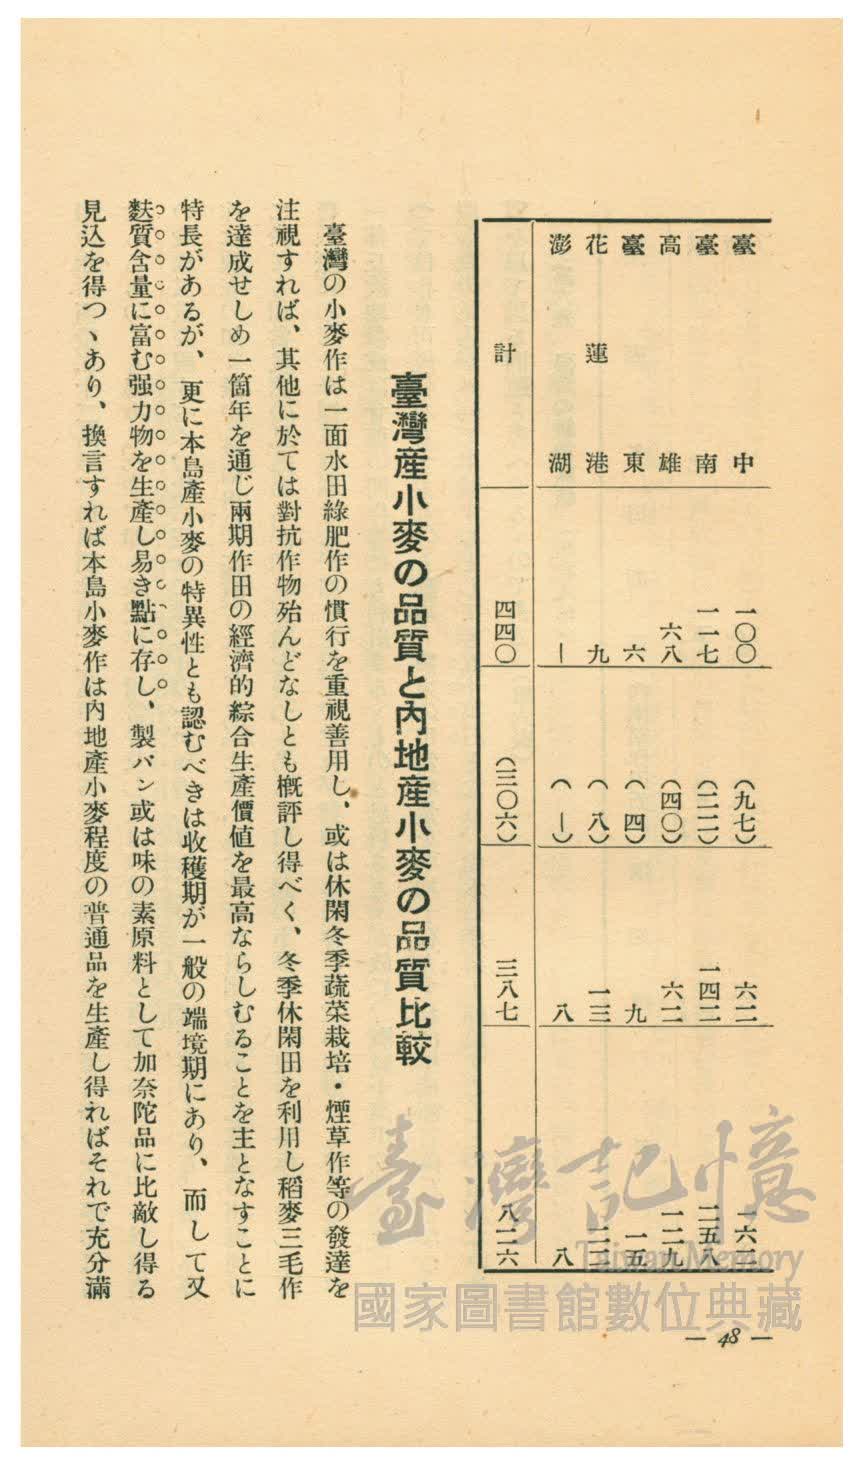 臺中　一〇〇　（九七）　六二　一六二
臺南　一一七　一四二　二五八
高雄　六八　（四〇）　六二　一二九
臺東　六　（四）　九　一五
花蓮港　九　（八）　一三
澎湖　｜　（｜）　八　八
計　四四〇　（三〇六）　三八七　八二六
臺灣產小麥の品質と內地產小麥の品質比較
臺灣の小麥作は一面水田綠肥作の慣行を重視善用し、或は休閑冬季蔬菜栽培・煙草作等の發達を
注視すれば、其他に於ては對抗作物殆んどなしとも槪評し得べく、冬季休閑田を利用し稻麥三毛作
を達成せしめ一箇年を通じ兩期作田の經濟的綜合生產價値を最高ならしむることを主となすことに
特長があるが、更に本島產小麥の特異性とも認むべきは收穫期が一般の端境期にあり、而して又
麩質含量に富む强力物を生產し易き點に存し、製パン或は味の素原料として加奈陀品に比敵し得る
見込を得つヽあり、換言すれば本島小麥作は內地產小麥程度の普通品を生產し得ればそれで充分滿
— 48 —
臺灣記憶
Taiwan Memory
國家圖書館數位典藏